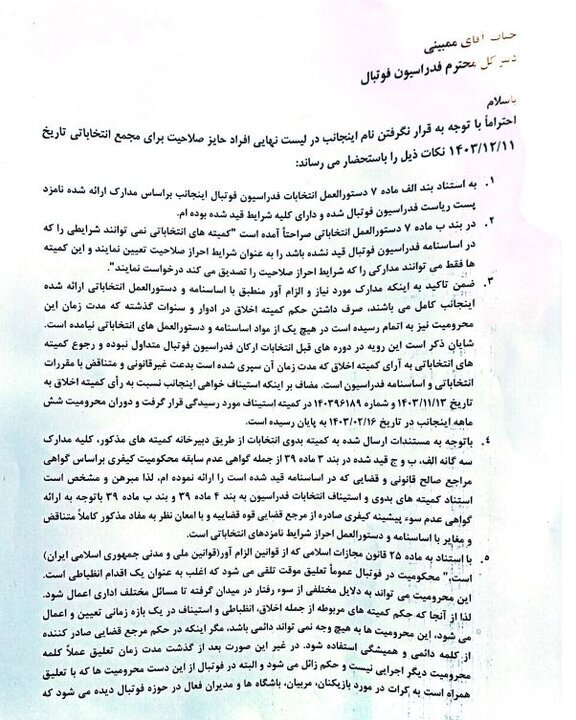 جناب آقای ممبینی
دبیر کل محترم فدراسیون فوتبال
باسلام
احتراماً با توجه به قرار نگرفتن نام اینجانب در لیست نهایی افراد حایز صلاحیت برای مجمع انتخاباتی تاریخ
۱۴۰۳/۱۲/۱۱ نکات ذیل را باستحضار می رساند:
۱. به استناد بند الف ماده ۷ دستورالعمل انتخابات فدراسیون فوتبال اینجانب براساس مدارک ارائه شده نامزد
پست ریاست فدراسیون فوتبال شده و دارای کلیه شرایط قید شده بوده ام.
۲. در بند ب ماده ۷ دستورالعمل انتخاباتی صراحتاً آمده است "کمیته های انتخاباتی نمی توانند شرایطی را که
در اساسنامه فدراسیون فوتبال قید نشده باشد را به عنوان شرایط احراز صلاحیت تعیین نمایند و این کمیته
ها فقط می توانند مدارکی را که شرایط احراز صلاحیت را تصدیق می کند درخواست نمایند".
۳. ضمن تاکید به اینکه مدارک مورد نیاز و الزام آور منطبق با اساسنامه و دستورالعمل انتخاباتی ارائه شده
اینجانب کامل می باشند، صرف داشتن حکم کمیته اخلاق در ادوار و سنوات گذشته که مدت زمان این
محرومیت نیز به اتمام رسیده است در هیچ یک از مواد اساسنامه و دستورالعمل های انتخاباتی نیامده است.
شایان ذکر است این رویه در دوره های قبل انتخابات ارکان فدراسیون فوتبال متداول نبوده و رجوع کمیته
های انتخاباتی به آرای کمیته اخلاق که مدت زمان آن سپری شده است بدعت غیرقانونی و متناقض با مقررات
انتخاباتی و اساسنامه فدراسیون است. مضاف بر اینکه استیناف خواهی اینجانب نسبت به رأی کمیته اخلاق به
تاریخ ۱۴۰۳/۱۱/۱۳ و شماره ۱۴۰۳۹۶۱۸۹ در کمیته استیناف مورد رسیدگی قرار گرفت و دوران محرومیت شش
ماهه اینجانب در تاریخ ۱۴۰۳/۰۲/۱۶ به پایان رسیده است.
۴. باتوجه به مستندات ارسال شده به کمیته بدوی انتخابات از طریق دبیرخانه کمیته های مذکور، کلیه مدارک
سه گانه الف، ب و ج قید شده در بند ۳ ماده ۳۹ از جمله گواهی عدم سابقه محکومیت کیفری براساس گواهی
مراجع صالح قانونی و قضایی که در اساسنامه قید شده است را ارائه نموده ام، لذا مبرهن و مشخص است
استناد کمیته های بدوی و استیناف انتخابات فدراسیون به بند ۴ ماده ۳۹ و بند ب ماده ۳۹ باتوجه به ارائه
گواهی عدم سوء پیشینه کیفری صادره از مرجع قضایی قوه قضاییه و با امعان نظر به مفاد مذکور کاملاً متناقض
و مغایر با اساسنامه و دستورالعمل احراز شرایط نامزدهای انتخاباتی است.
۵. با استناد به ماده ۲۵ قانون مجازات اسلامی که از قوانین الزام آور(قوانین ملی و مدنی جمهوری اسلامی ایران)
است," محکومیت در فوتبال عموماً تعلیق موقت تلقی می شود که اغلب به عنوان یک اقدام انظباطی است.
این محرومیت می تواند به دلایل مختلفی از سوء رفتار در میدان گرفته تا مسائل مختلف اداری اعمال شود.
لذا از آنجا که حکم کمیته های مربوطه از جمله اخلاق، انظباطی و استیناف در یک بازه زمانی تعیین و اعمال
می شود، این محرومیت ها به هیچ وجه نمی تواند دائمی باشد، مگر اینکه در حکم مرجع قضایی صادر کننده
از کلمه دائمی و همیشگی استفاده شود. در غیر این صورت بعد از گذشت مدت زمان تعلیق عملاً کلمه
محرومیت دیگر اجرایی نیست و حکم زائل می شود و البته در فوتبال از این دست محرومیت ها که با تعلیق
همراه است به کرات در مورد بازیکنان، مربیان، باشگاه ها و مدیران فعال در حوزه فوتبال دیده می شود که